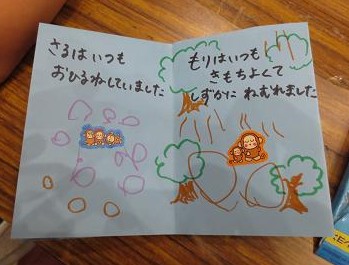 さるはいつも
おひるねしていました
もりはいつも
きもちよくて
しずかに ねむれました